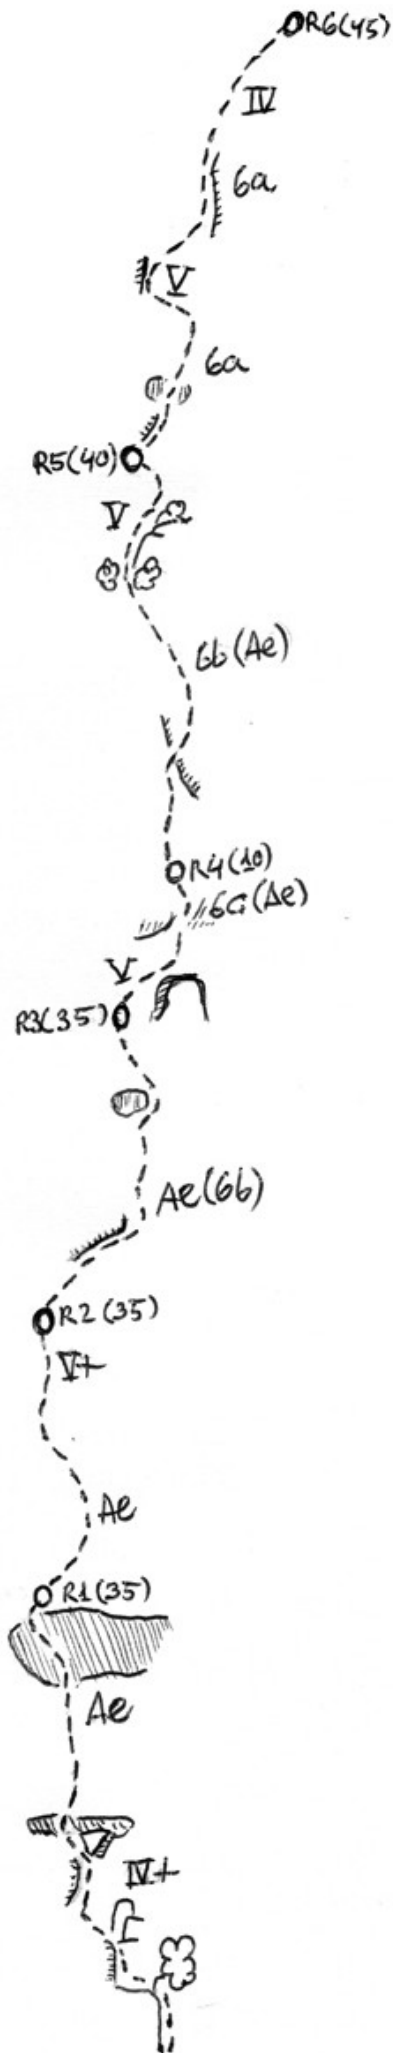 R6(45)
IV
6a
V
6a
R5(40)
V
6b(Ae)
R4(10)
6c(Ae)
V
R3(35)
Ae(6b)
R2(35)
V+
Ae
R1(35)
Ae
IV+